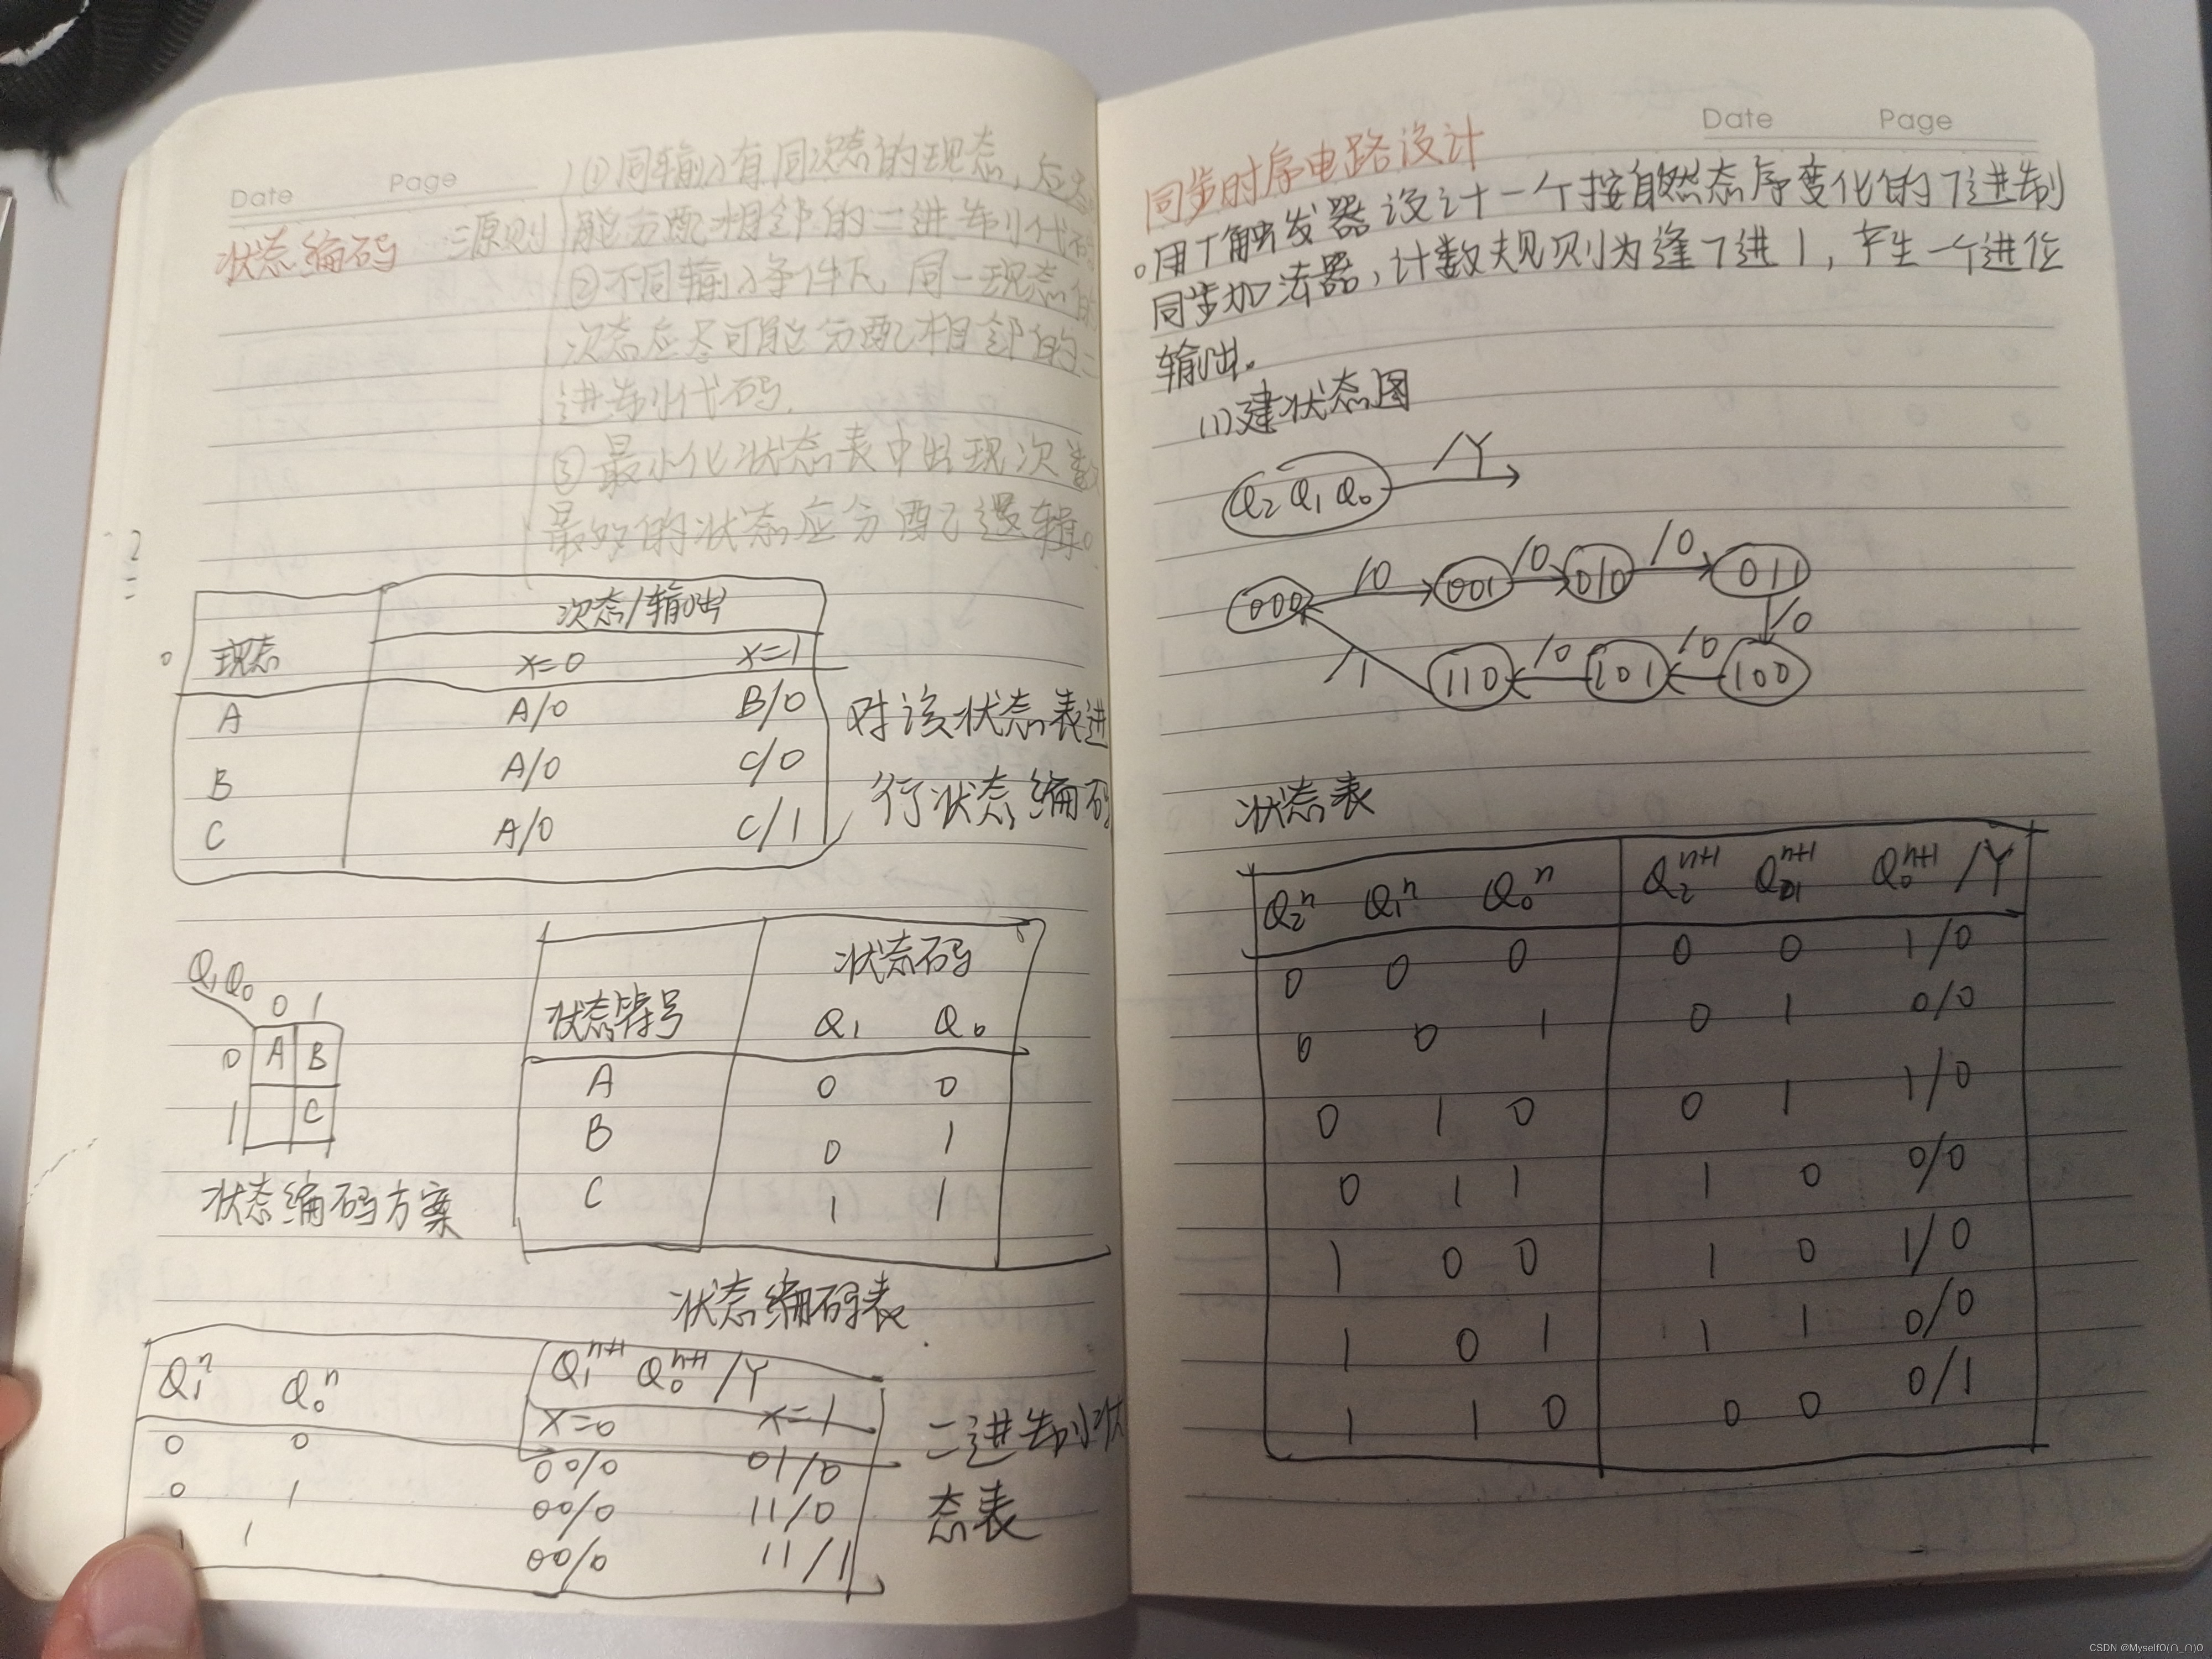 Date Page
状态编码 三原则
①同输入有同次态的现态，应尽
能分配相邻的二进制代码。
②不同输入条件下，同一现态的
次态应尽可能分配相邻的二
进制代码.
③最小化状态表中出现次数
最多的状态应分配0逻辑。
现态 次态/输出
x=0 x=1
A A/0 B/0
B A/0 C/0
C A/0 C/1
对该状态表进
行状态编码
Q1Q0 0 1
0 A B
1 C
状态编码方案
状态符号 状态码
Q1 Q0
A 0 0
B 0 1
C 1 1
状态编码表
Q1^n Q0^n Q1^n+1 Q0^n+1 /Y
x=0 x=1
0 0 00/0 01/0
0 1 00/0 11/0
1 1 00/0 11/1
二进制状
态表
Date Page
同步时序电路设计
。用T触发器设计一个按自然态序变化的7进制
同步加法器，计数规则为逢7进1，产生一个进位
输出。
(1)建状态图
Q2 Q1 Q0 /Y
000 /0 001 /0 010 /0 011
/0
/1 110 /0 101 /0 100
状态表
Q2^n Q1^n Q0^n Q2^n+1 Q1^n+1 Q0^n+1 /Y
0 0 0 0 0 1/0
0 0 1 0 1 0/0
0 1 0 0 1 1/0
0 1 1 1 0 0/0
1 0 0 1 0 1/0
1 0 1 1 1 0/0
1 1 0 0 0 0/1
CSDN @Myself0(∩_∩)0